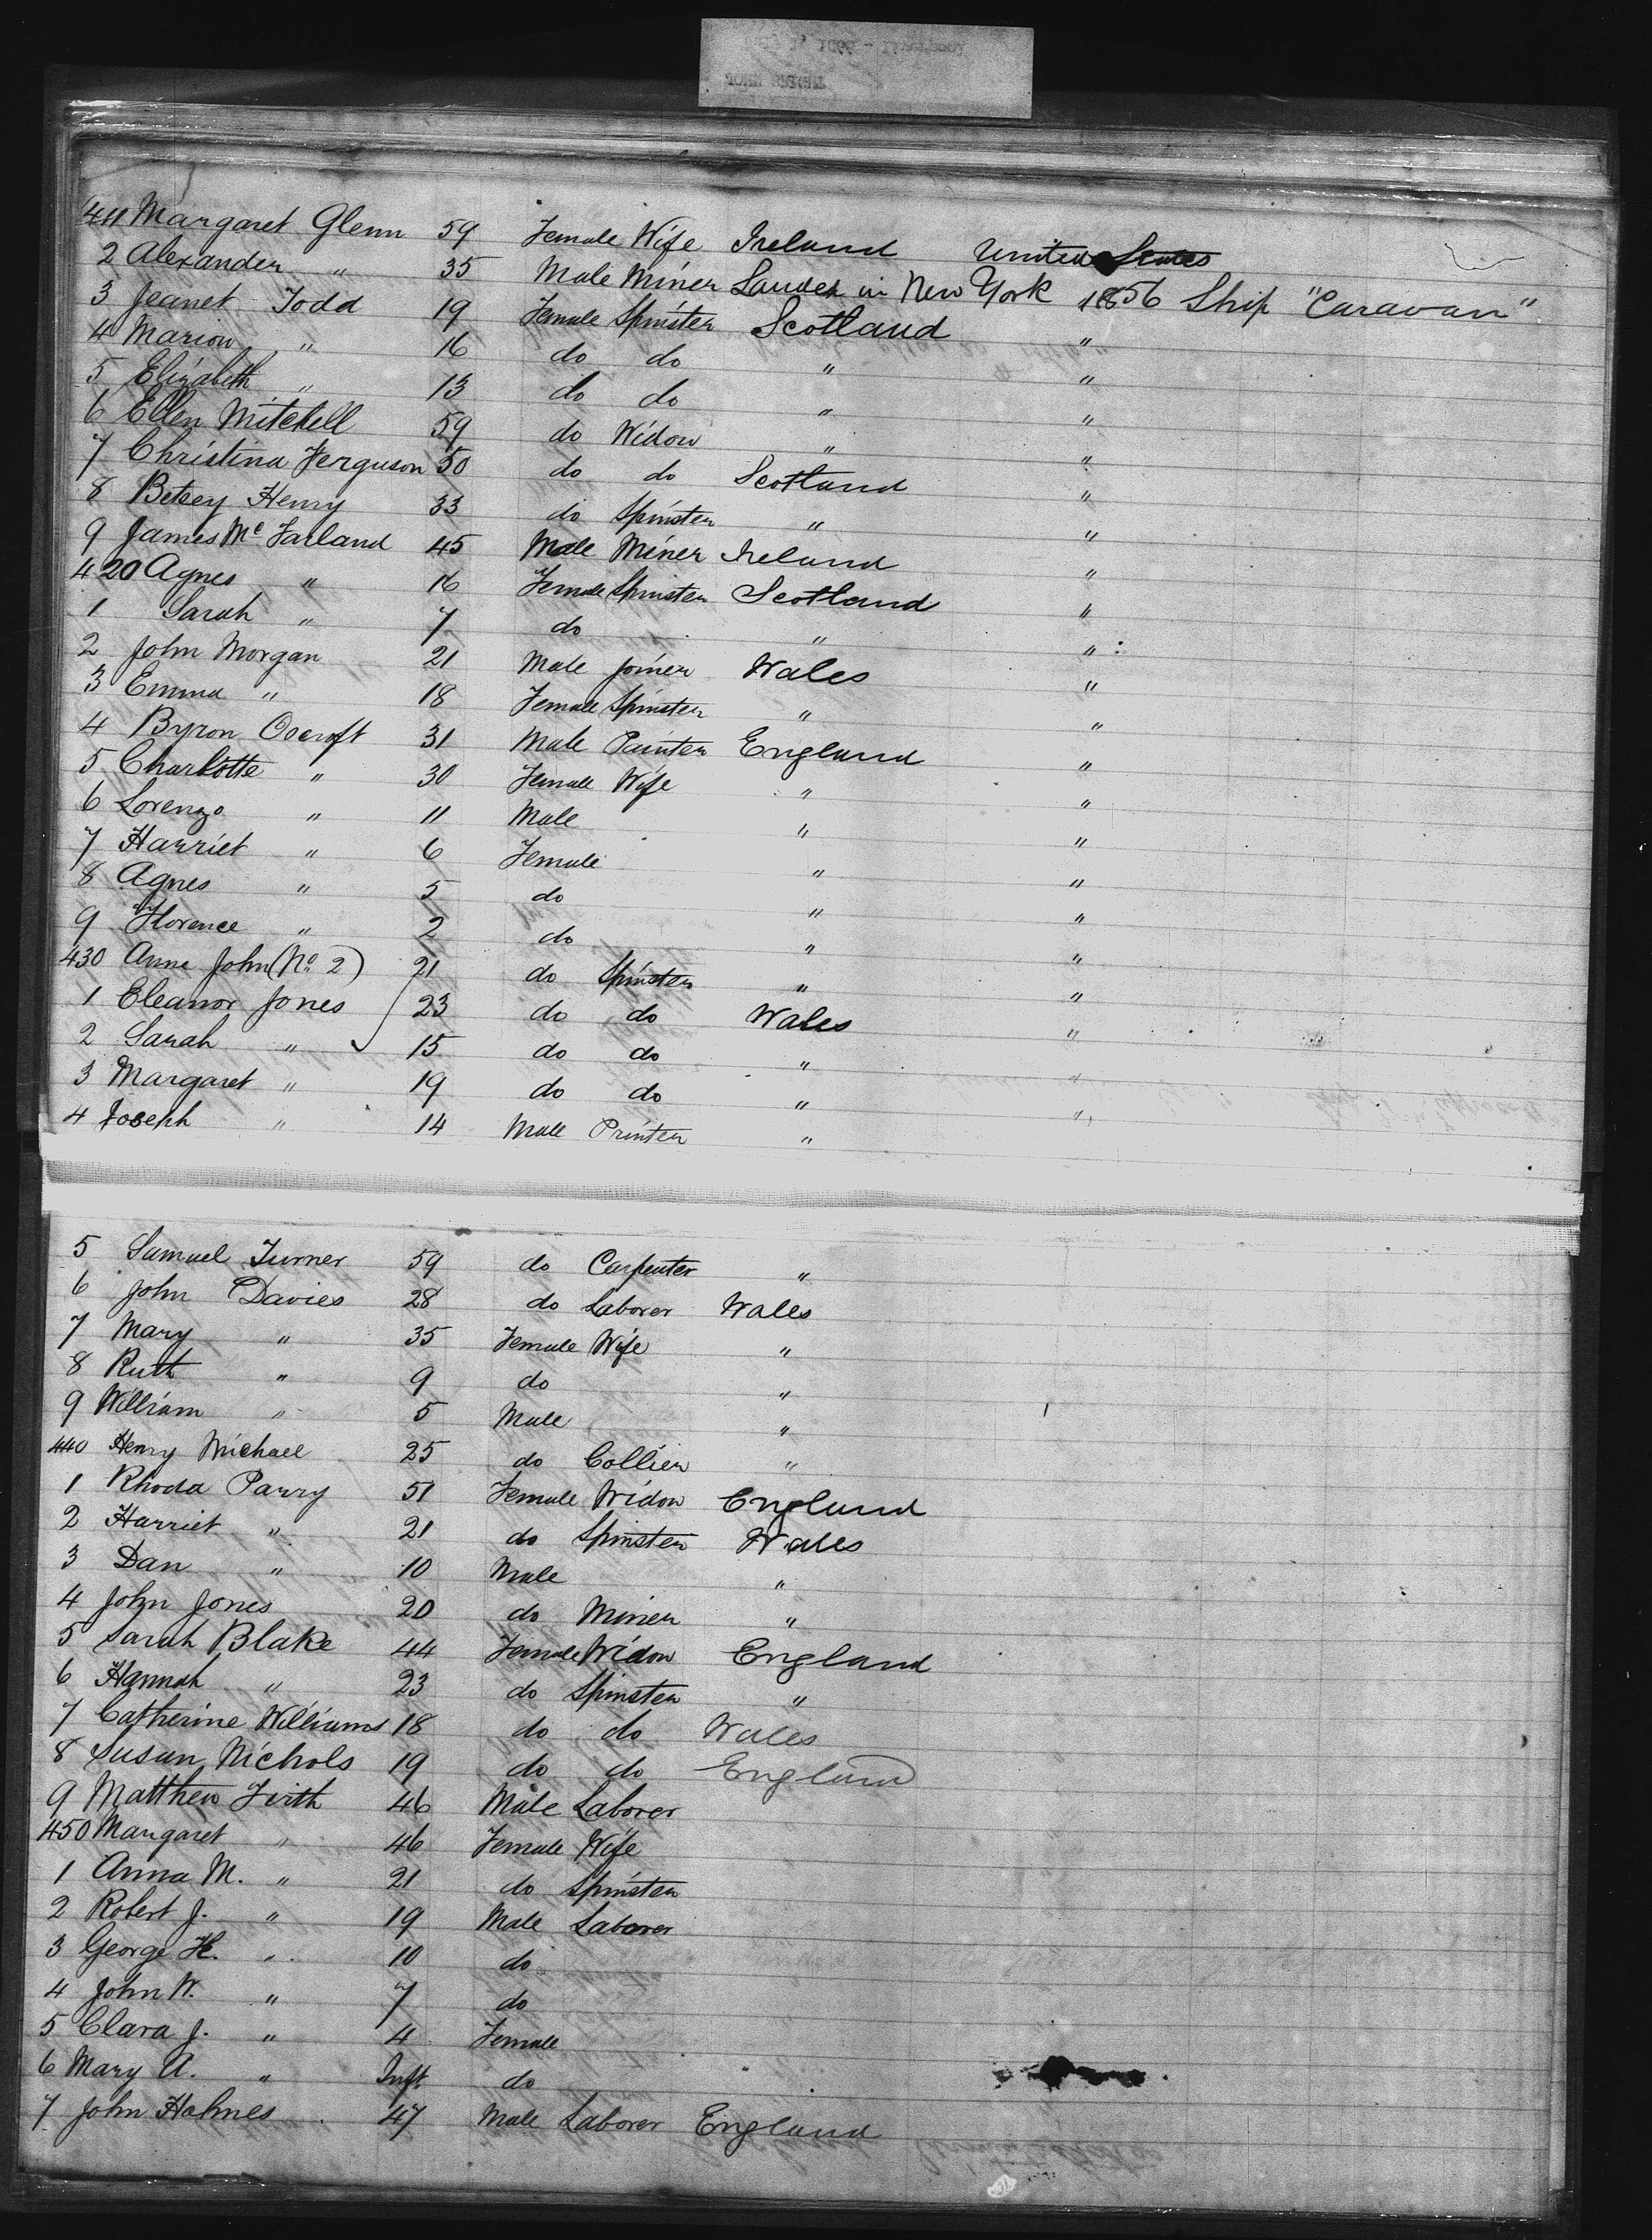 411 Margaret Glenn 59 Female Wife Ireland United States
2 Alexander " 35 Male Miner Landed in New York 1856 Ship "Caravan"
3 Jeanet Todd 19 Female Spinster Scotland "
4 Marion " 16 do do " "
5 Elizabeth " 13 do do " "
6 Ellen Mitchell 59 do Widow " "
7 Christina Ferguson 50 do do Scotland "
8 Betsey Henry 33 do Spinster " "
9 James Mc Farland 45 Male Miner Ireland "
420 Agnes " 16 Female Spinster Scotland "
1 Sarah " 7 do " "
2 John Morgan 21 Male Joiner Wales "
3 Emma " 18 Female Spinster " "
4 Byron Oscroft 31 Male Painter England "
5 Charlotte " 30 Female Wife " "
6 Lorenzo " 11 Male " "
7 Harriet " 6 Female " "
8 Agnes " 5 do " "
9 Florence " 2 do " "
430 Anne John (No 2) 21 do Spinster " "
1 Eleanor Jones 23 do do Wales "
2 Sarah " 15 do do " "
3 Margaret " 19 do do " "
4 Joseph " 14 Male Printer "
5 Samuel Turner 59 do Carpenter "
6 John Davies 28 do Laborer Wales
7 Mary " 35 Female Wife "
8 Ruth " 9 do "
9 William " 5 Male "
440 Henry Michael 25 do Collier "
1 Rhoda Parry 51 Female Widow England
2 Harriet " 21 do Spinster Wales
3 Dan " 10 Male "
4 John Jones 20 do Miner "
5 Sarah Blake 44 Female Widow England
6 Hannah " 23 do Spinster "
7 Catherine Williams 18 do do Wales
8 Susan Nichols 19 do do England
9 Matthew Firth 46 Male Laborer
450 Margaret " 46 Female Wife
1 Anna M. " 21 do Spinster
2 Robert J. " 19 Male Laborer
3 George H. " 10 do
4 John W. " 7 do
5 Clara J. " 4 Female
6 Mary A. " Inft. do
7 John Holmes 47 Male Laborer England